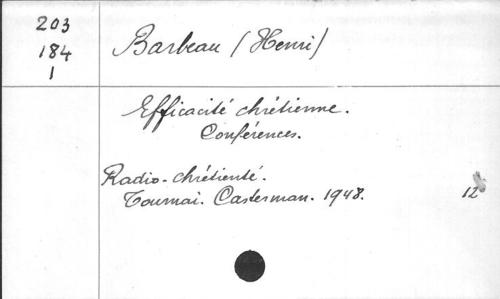 203
184
1
Barbeau (Henri)
Efficacité chrétienne.
Conférences.
Radio-chrétienté.
Tournai. Casterman. 1948.
12°